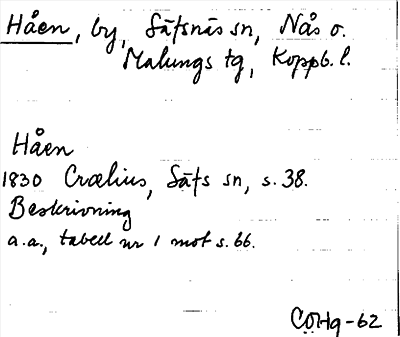 Håen, by, Säfsnäs sn, Nås o.
Malungs tg, Koppb. l.
Håen
1830 Crælius, Säfs sn, s. 38.
Beskrivning
a.a., tabell nr 1 mot s. 66.
COHg-62